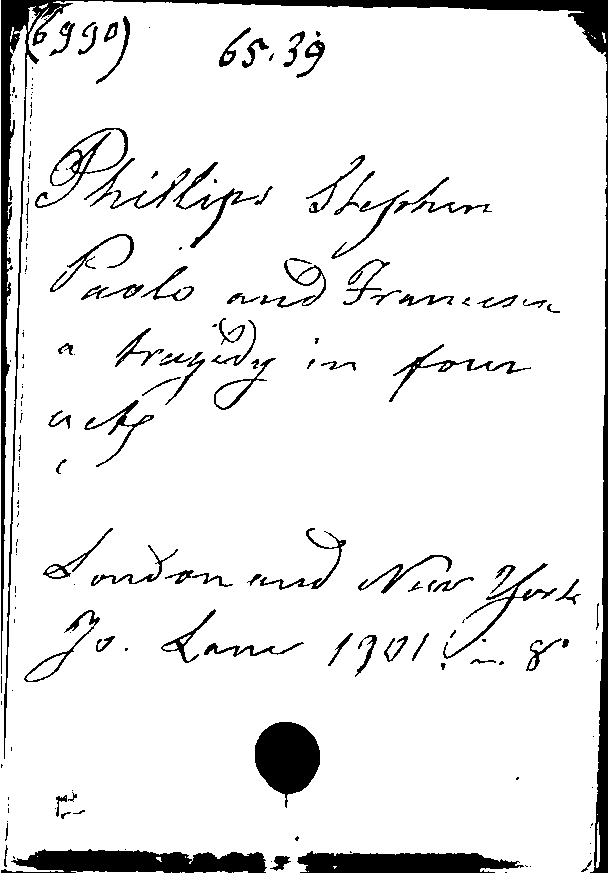 (6990) 65.39
Phillips Stephen
Paolo and Francesca
a tragedy in four
acts
London and New York
Jo. Lane 1901. in 8°